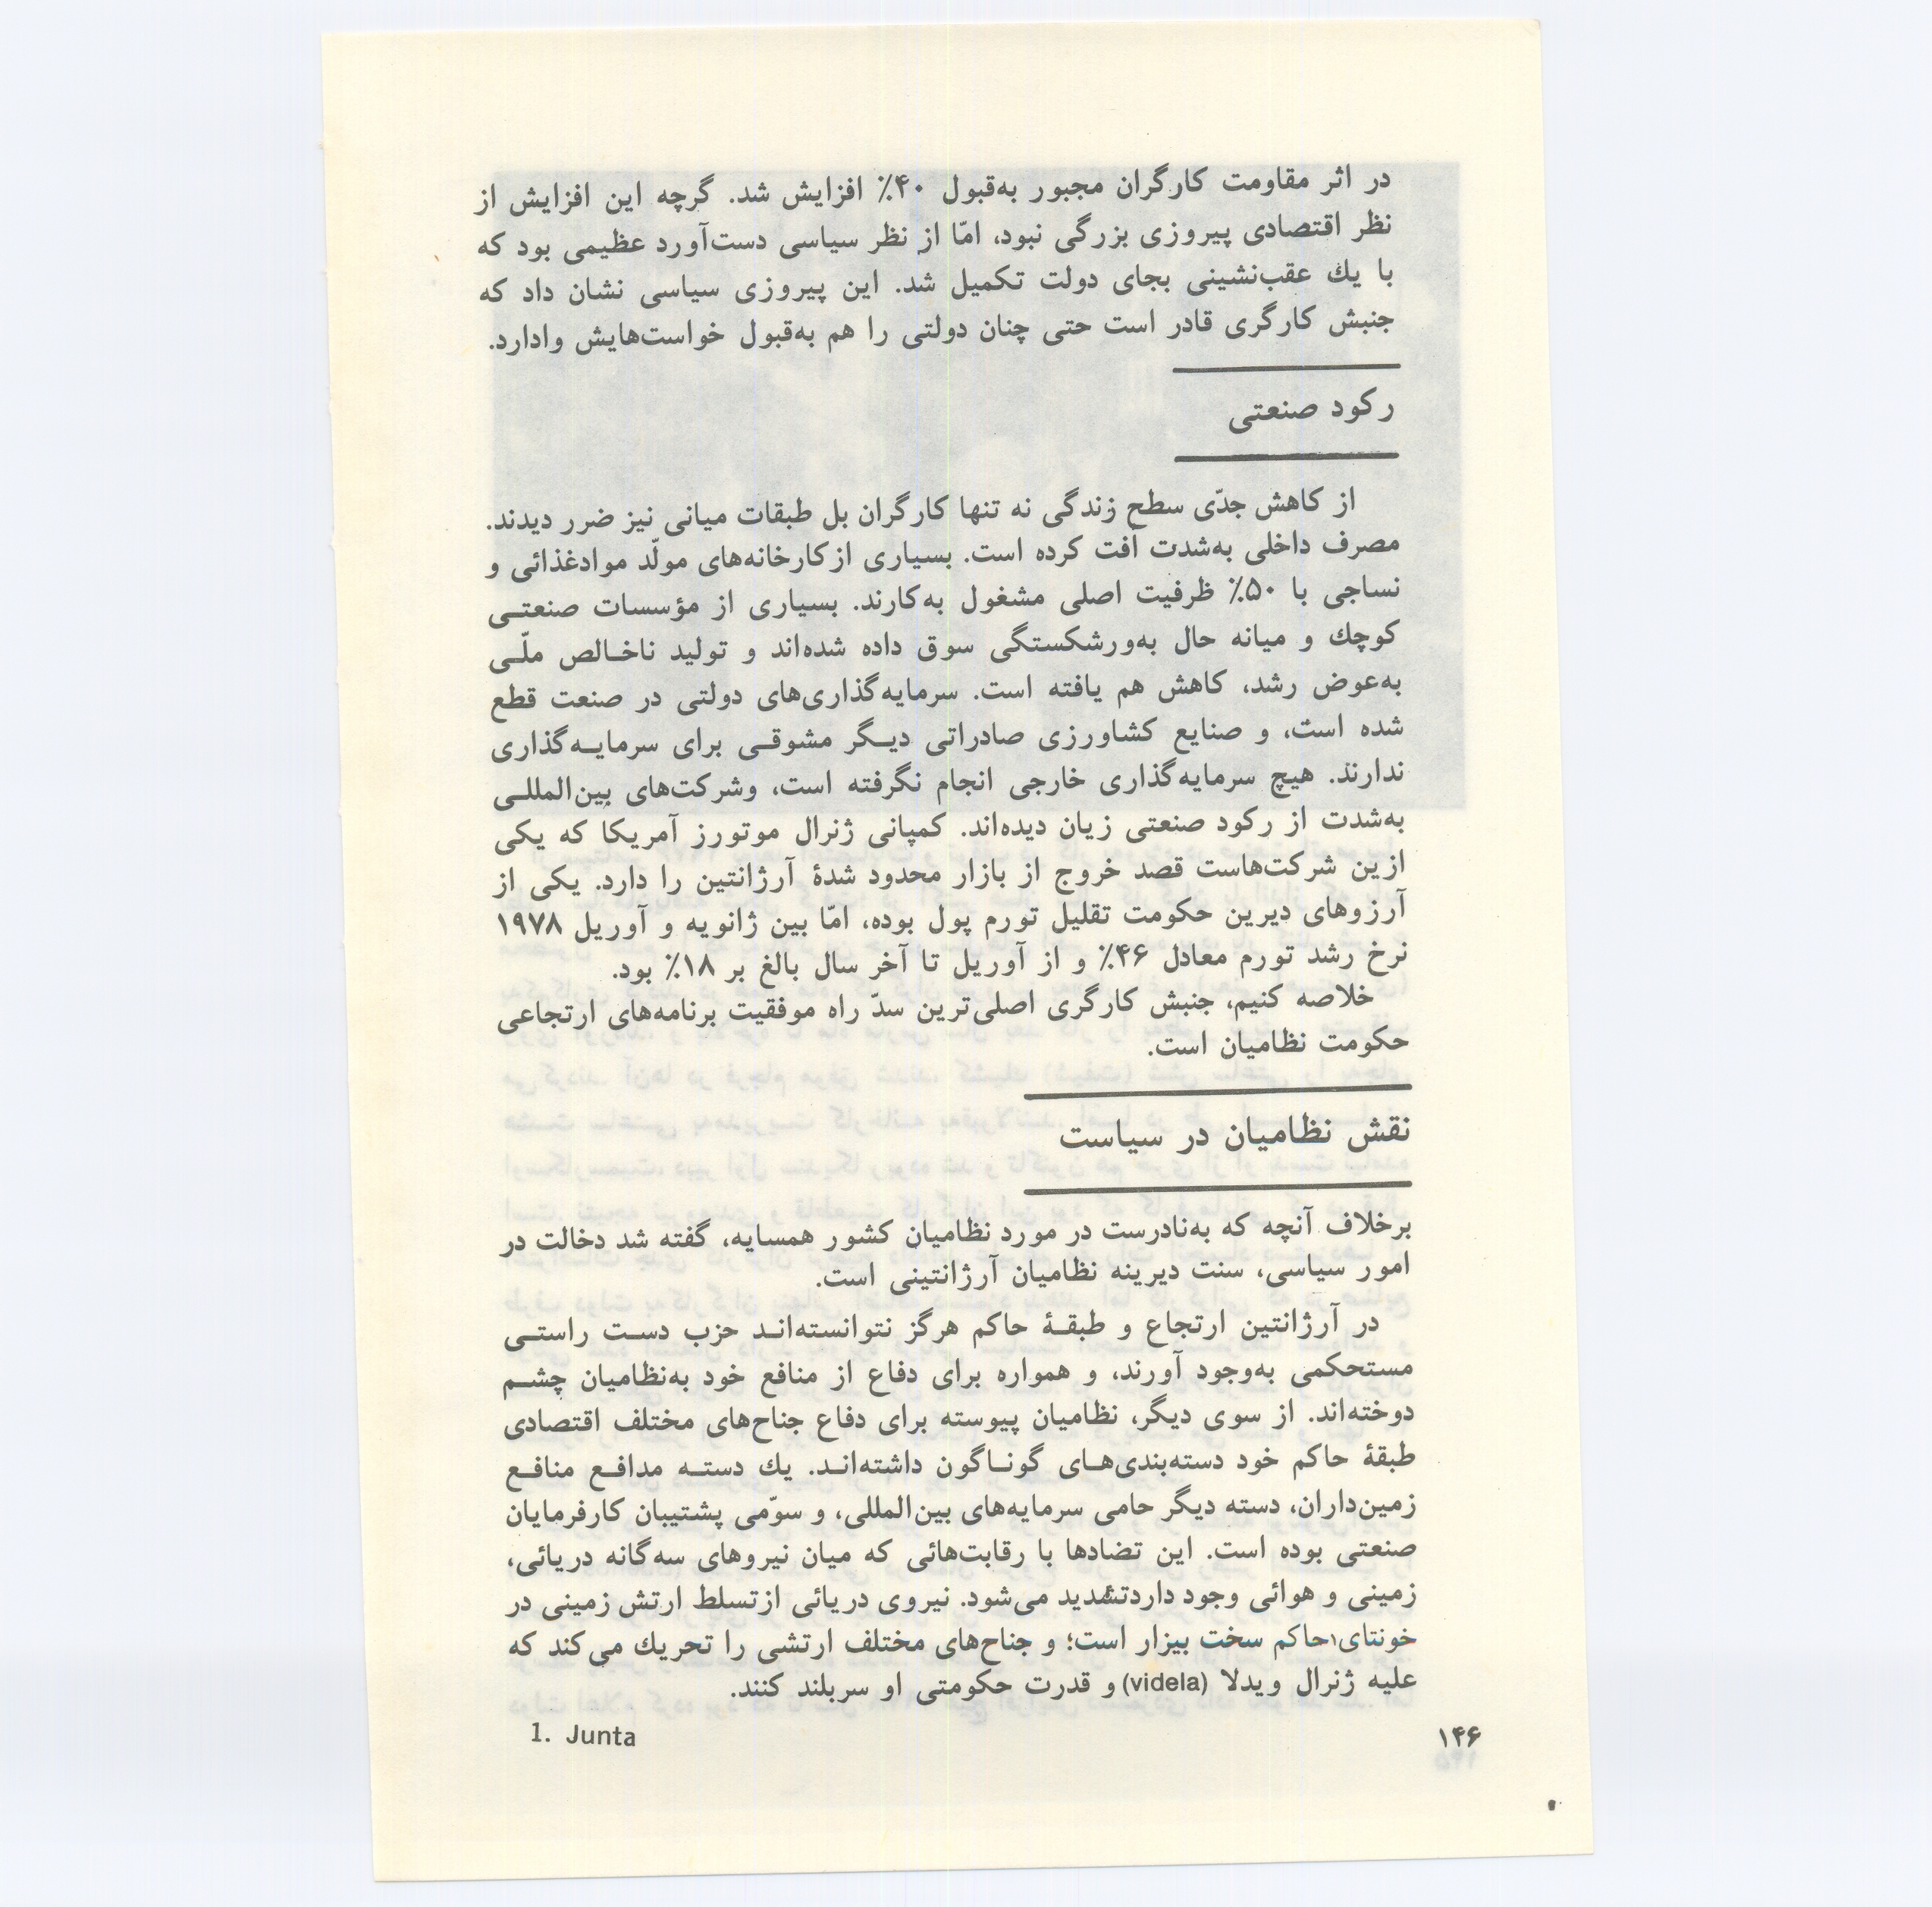 در اثر مقاومت کارگران مجبور به‌قبول ۴۰٪ افزایش شد. گرچه این افزایش از
نظر اقتصادی پیروزی بزرگی نبود، امّا از نظر سیاسی دست‌آورد عظیمی بود که
با یك عقب‌نشینی بجای دولت تکمیل شد. این پیروزی سیاسی نشان داد که
جنبش کارگری قادر است حتی چنان دولتی را هم به‌قبول خواست‌هایش وادارد.
رکود صنعتی
از کاهش جدّی سطح زندگی نه تنها کارگران بل طبقات میانی نیز ضرر دیدند.
مصرف داخلی به‌شدت اُفت کرده است. بسیاری ازکارخانه‌های مولّد موادغذائی و
نساجی با ۵۰٪ ظرفیت اصلی مشغول به‌کارند. بسیاری از مؤسسات صنعتـی
کوچك و میانه حال به‌ورشکستگی سوق داده شده‌اند و تولید ناخـالص ملّـی
به‌عوض رشد، کاهش هم یافته است. سرمایه‌گذاری‌های دولتی در صنعت قطع
شده است، و صنایع کشاورزی صادراتی دیـگر مشوقـی برای سرمایـه‌گذاری
ندارند. هیچ سرمایه‌گذاری خارجی انجام نگرفته است، وشرکت‌های بین‌المللـی
به‌شدت از رکود صنعتی زیان دیده‌اند. کمپانی ژنرال موتورز آمریکا که یکی
ازین شرکت‌هاست قصد خروج از بازار محدود شدهٔ آرژانتین را دارد. یکی از
آرزوهای دیرین حکومت تقلیل تورم پول بوده، امّا بین ژانویه و آوریل ۱۹۷۸
نرخ رشد تورم معادل ۴۶٪ و از آوریل تا آخر سال بالغ بر ۱۸٪ بود.
خلاصه کنیم، جنبش کارگری اصلی‌ترین سدّ راه موفقیت برنامه‌های ارتجاعی
حکومت نظامیان است.
نقش نظامیان در سیاست
برخلاف آنچه که به‌نادرست در مورد نظامیان کشور همسایه، گفته شد دخالت در
امور سیاسی، سنت دیرینه نظامیان آرژانتینی است.
در آرژانتین ارتجاع و طبقـهٔ حاکم هرگز نتوانسته‌انـد حزب دسـت راستـی
مستحکمی به‌وجود آورند، و همواره برای دفاع از منافع خود به‌نظامیان چشـم
دوخته‌اند. از سوی دیگر، نظامیان پیوسته برای دفاع جناح‌های مختلف اقتصادی
طبقهٔ حاکم خود دسته‌بندی‌هـای گونـاگون داشته‌انـد. یك دستـه مدافـع منافـع
زمین‌داران، دسته دیگر حامی سرمایه‌های بین‌المللی، و سوّمی پشتیبان کارفرمایان
صنعتی بوده است. این تضادها با رقابت‌هائی که میان نیروهای سه‌گانه دریائی،
زمینی و هوائی وجود داردتشدید می‌شود. نیروی دریائی ازتسلط ارتش زمینی در
خونتای۱حاکم سخت بیزار است؛ و جناح‌های مختلف ارتشی را تحریك می‌کند که
علیه ژنرال ویدلا (videla) و قدرت حکومتی او سربلند کنند.
1. Junta
۱۴۶